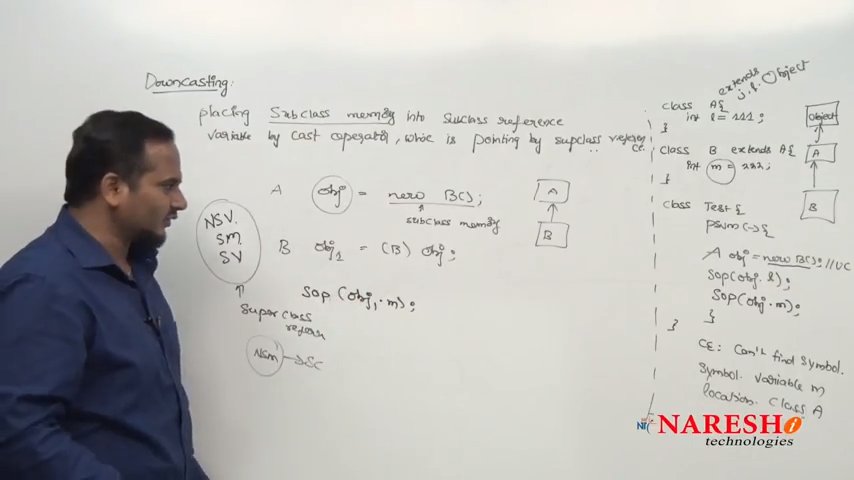 Downcasting:
placing Subclass memory into Subclass reference
variable by cast operator, which is pointing by supclass reference.
A obj = new B();
subclass memory
B obj1 = (B) obj;
Sop (obj1.m);
NSV.
SM
SV
Super class
refern
NSM → SC
A
B
extends
j.l. Object
class A{
int l = 111;
}
class B extends A{
int m = 222;
}
class Test{
psvm(-){
A obj = new B(); //UC
Sop(obj.l);
Sop(obj.m);
}
}
CE: Can't find Symbol.
Symbol. Variable m
location. Class A
Object
A
B
NARESH i
technologies